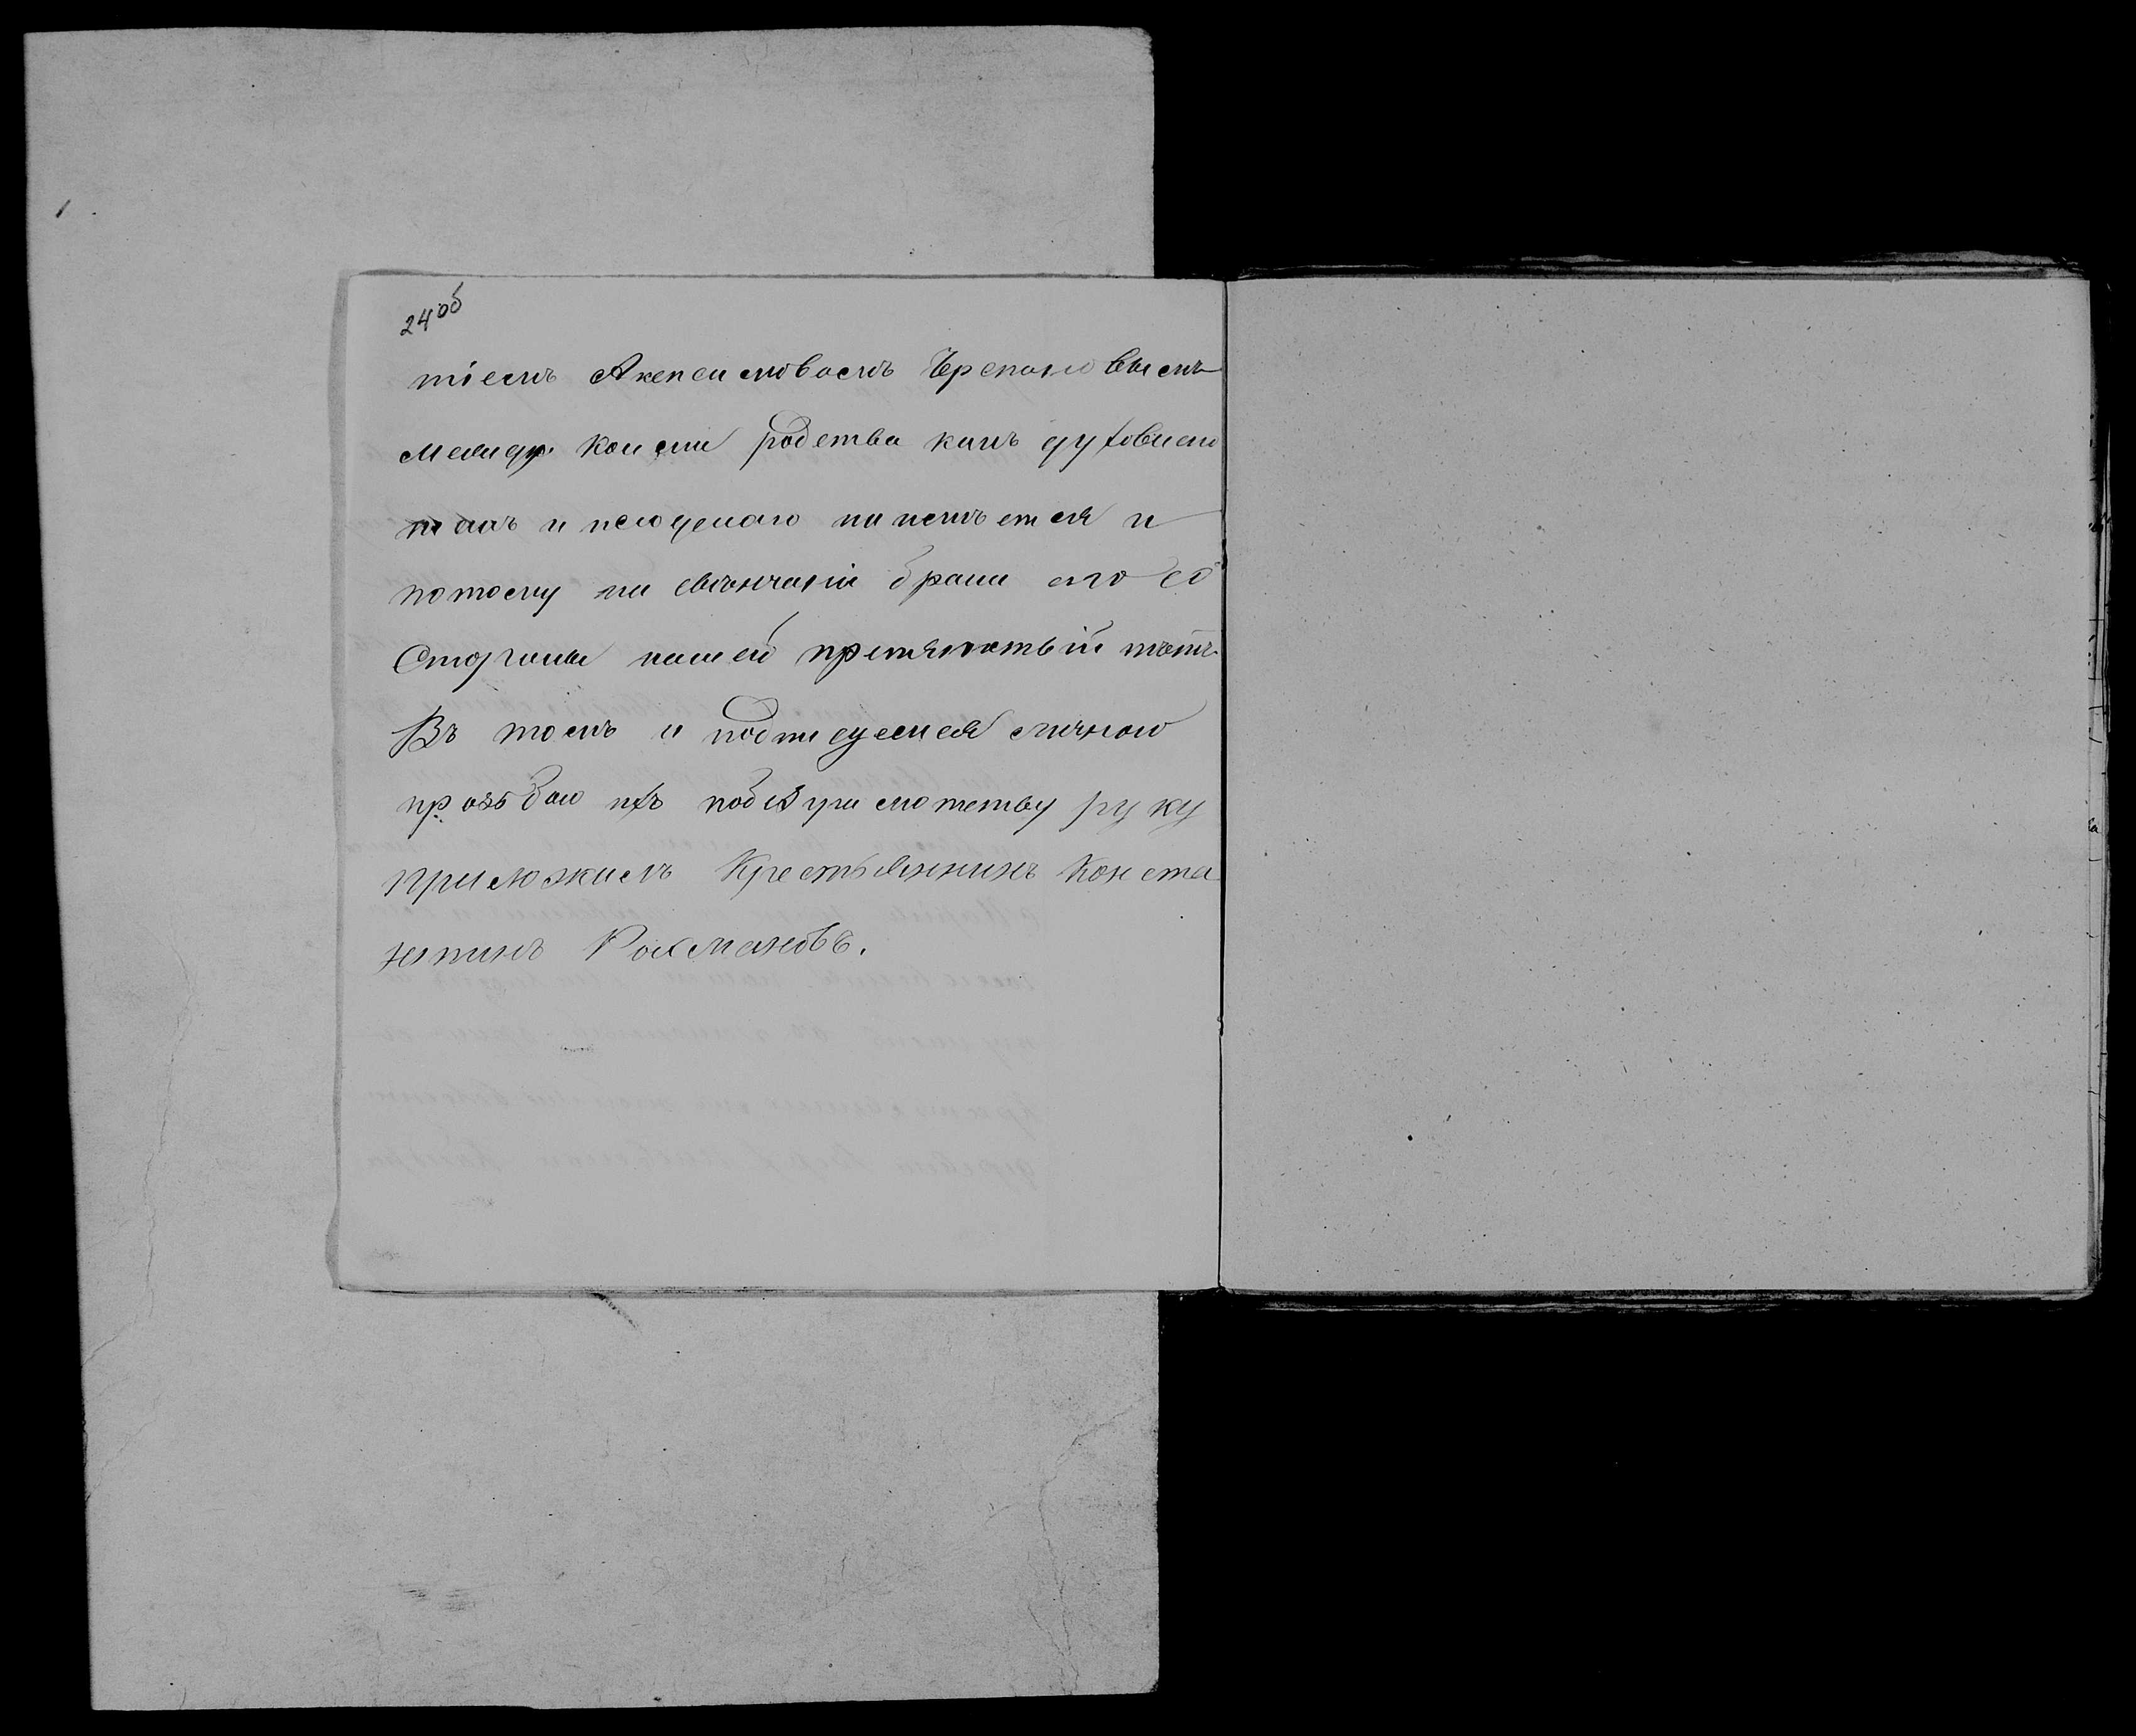 24 об
тіемъ Аксеновомъ Черепановымъ
между коими родства какъ духовнаго
такъ и плоцкаго ни неимъется и
потому на свѣнчаніи брака его со
Стороны нашей препяцтвій нѣтъ.
Въ томъ и подпиуемся личною
прозьбою ихъ
руку
приложилъ Крестьянинъ Конста
нтинъ Рохмановъ.